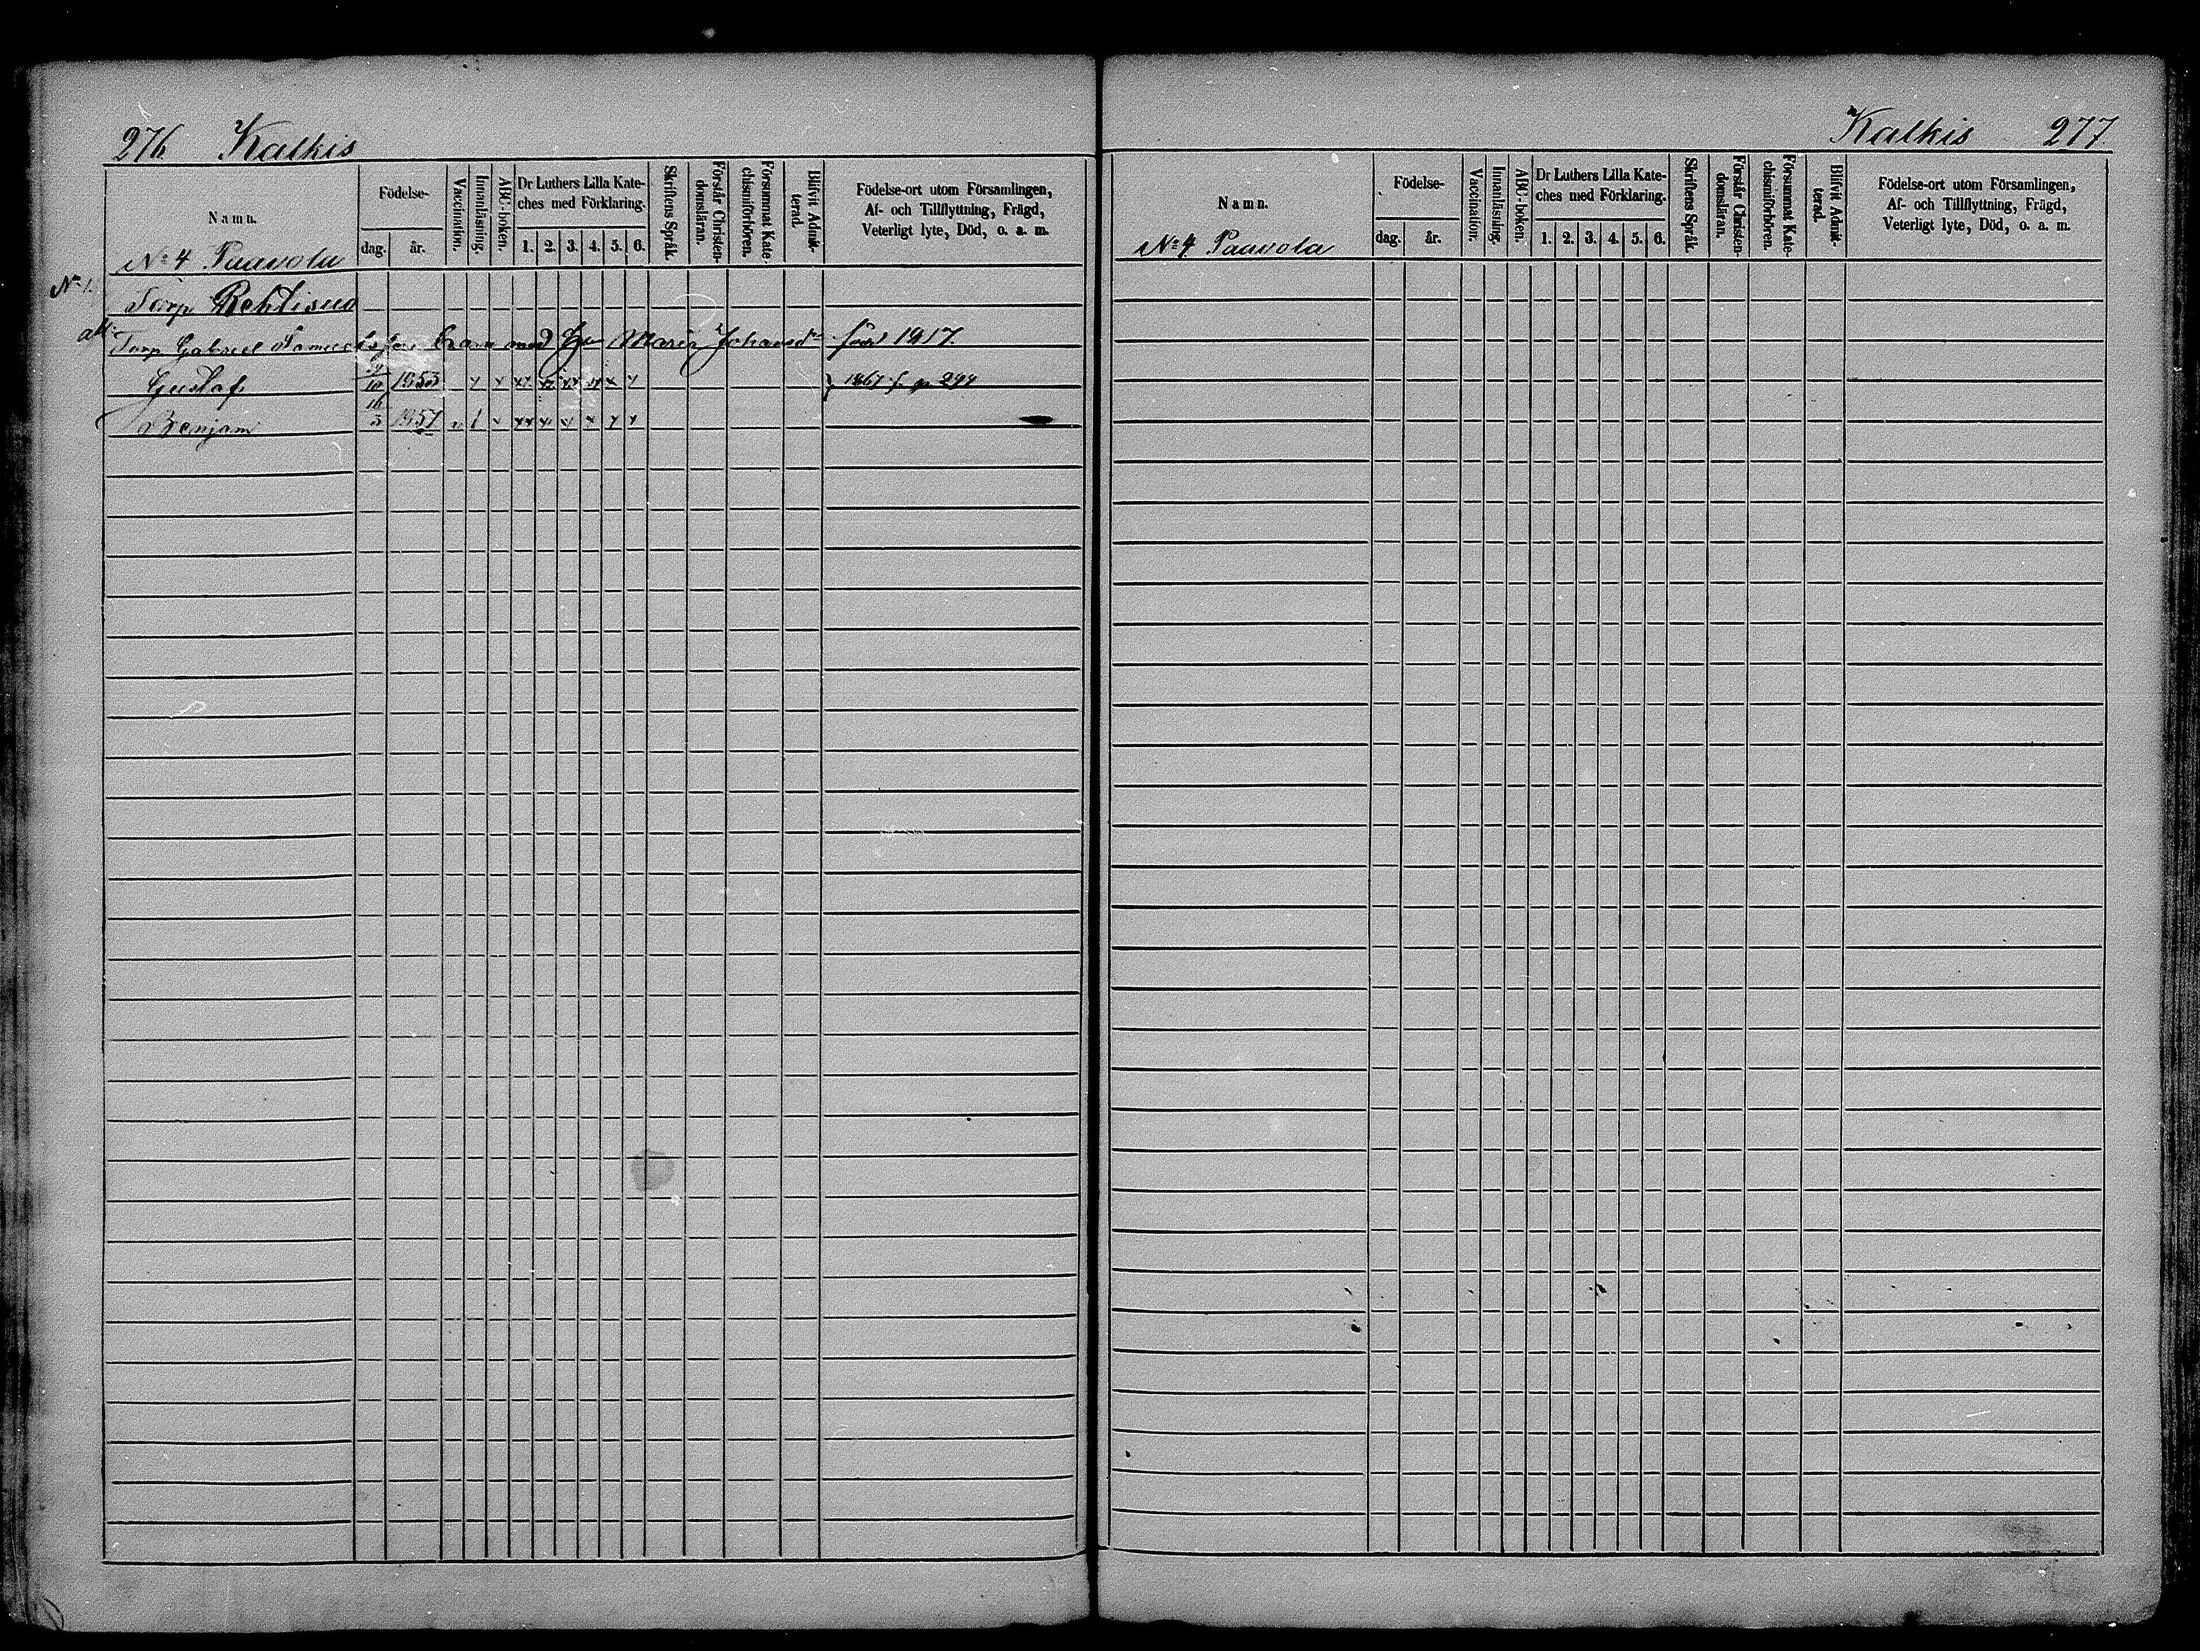 276 Kalkis
Namn.
Födelse-
dag.
år.
Vaccination.
Innanläsning.
ABC-boken.
Dr Luthers Lilla Kate-
ches med Förklaring.
1. 2. 3. 4. 5. 6.
Skriftens Språk.
Förstår Christen-
domsläran.
Försummat Kate-
chismiförhören.
Blifvit Admit-
terad.
Födelse-ort utom Församlingen,
Af- och Tillflyttning, Frägd,
Veterligt lyte, Död, o. a. m.
No 4 Paavola
No 1.
Torp Rehtisuo
Torp Gabriel barn med Maria
Gustaf 10 1853 1867 f. p. 294
Benjam 16 3 1857
Kalkis 277
Namn.
Födelse-
dag.
år.
Vaccination.
Innanläsning.
ABC-boken.
Dr Luthers Lilla Kate-
ches med Förklaring.
1. 2. 3. 4. 5. 6.
Skriftens Språk.
Förstår Christen-
domsläran.
Försummat Kate-
chismiförhören.
Blifvit Admit-
terad.
Födelse-ort utom Församlingen,
Af- och Tillflyttning, Frägd,
Veterligt lyte, Död, o. a. m.
No 4 Paavola